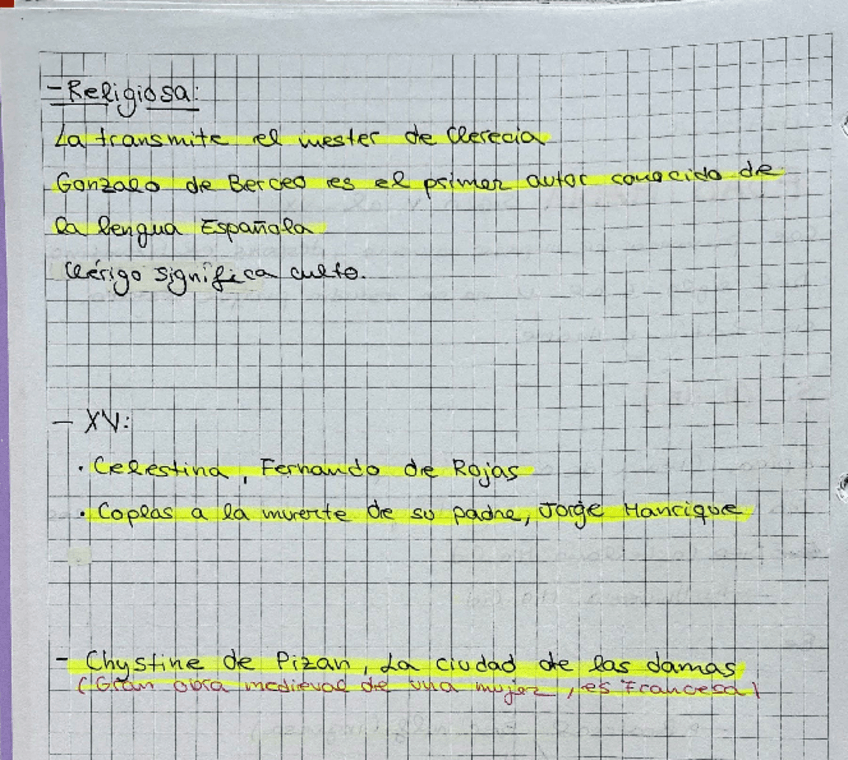 - Religiosa:
La transmite el mester de clerecía
Gonzalo de Berceo es el primer autor conocido de
la lengua Española
Clérigo significa culto.
- XV:
· Celestina, Fernando de Rojas
· Coplas a la muerte de su padre, Jorge Manrique
- Chystine de Pizan, La ciudad de las damas
(Gran obra medieval de una mujer, es Francesa)